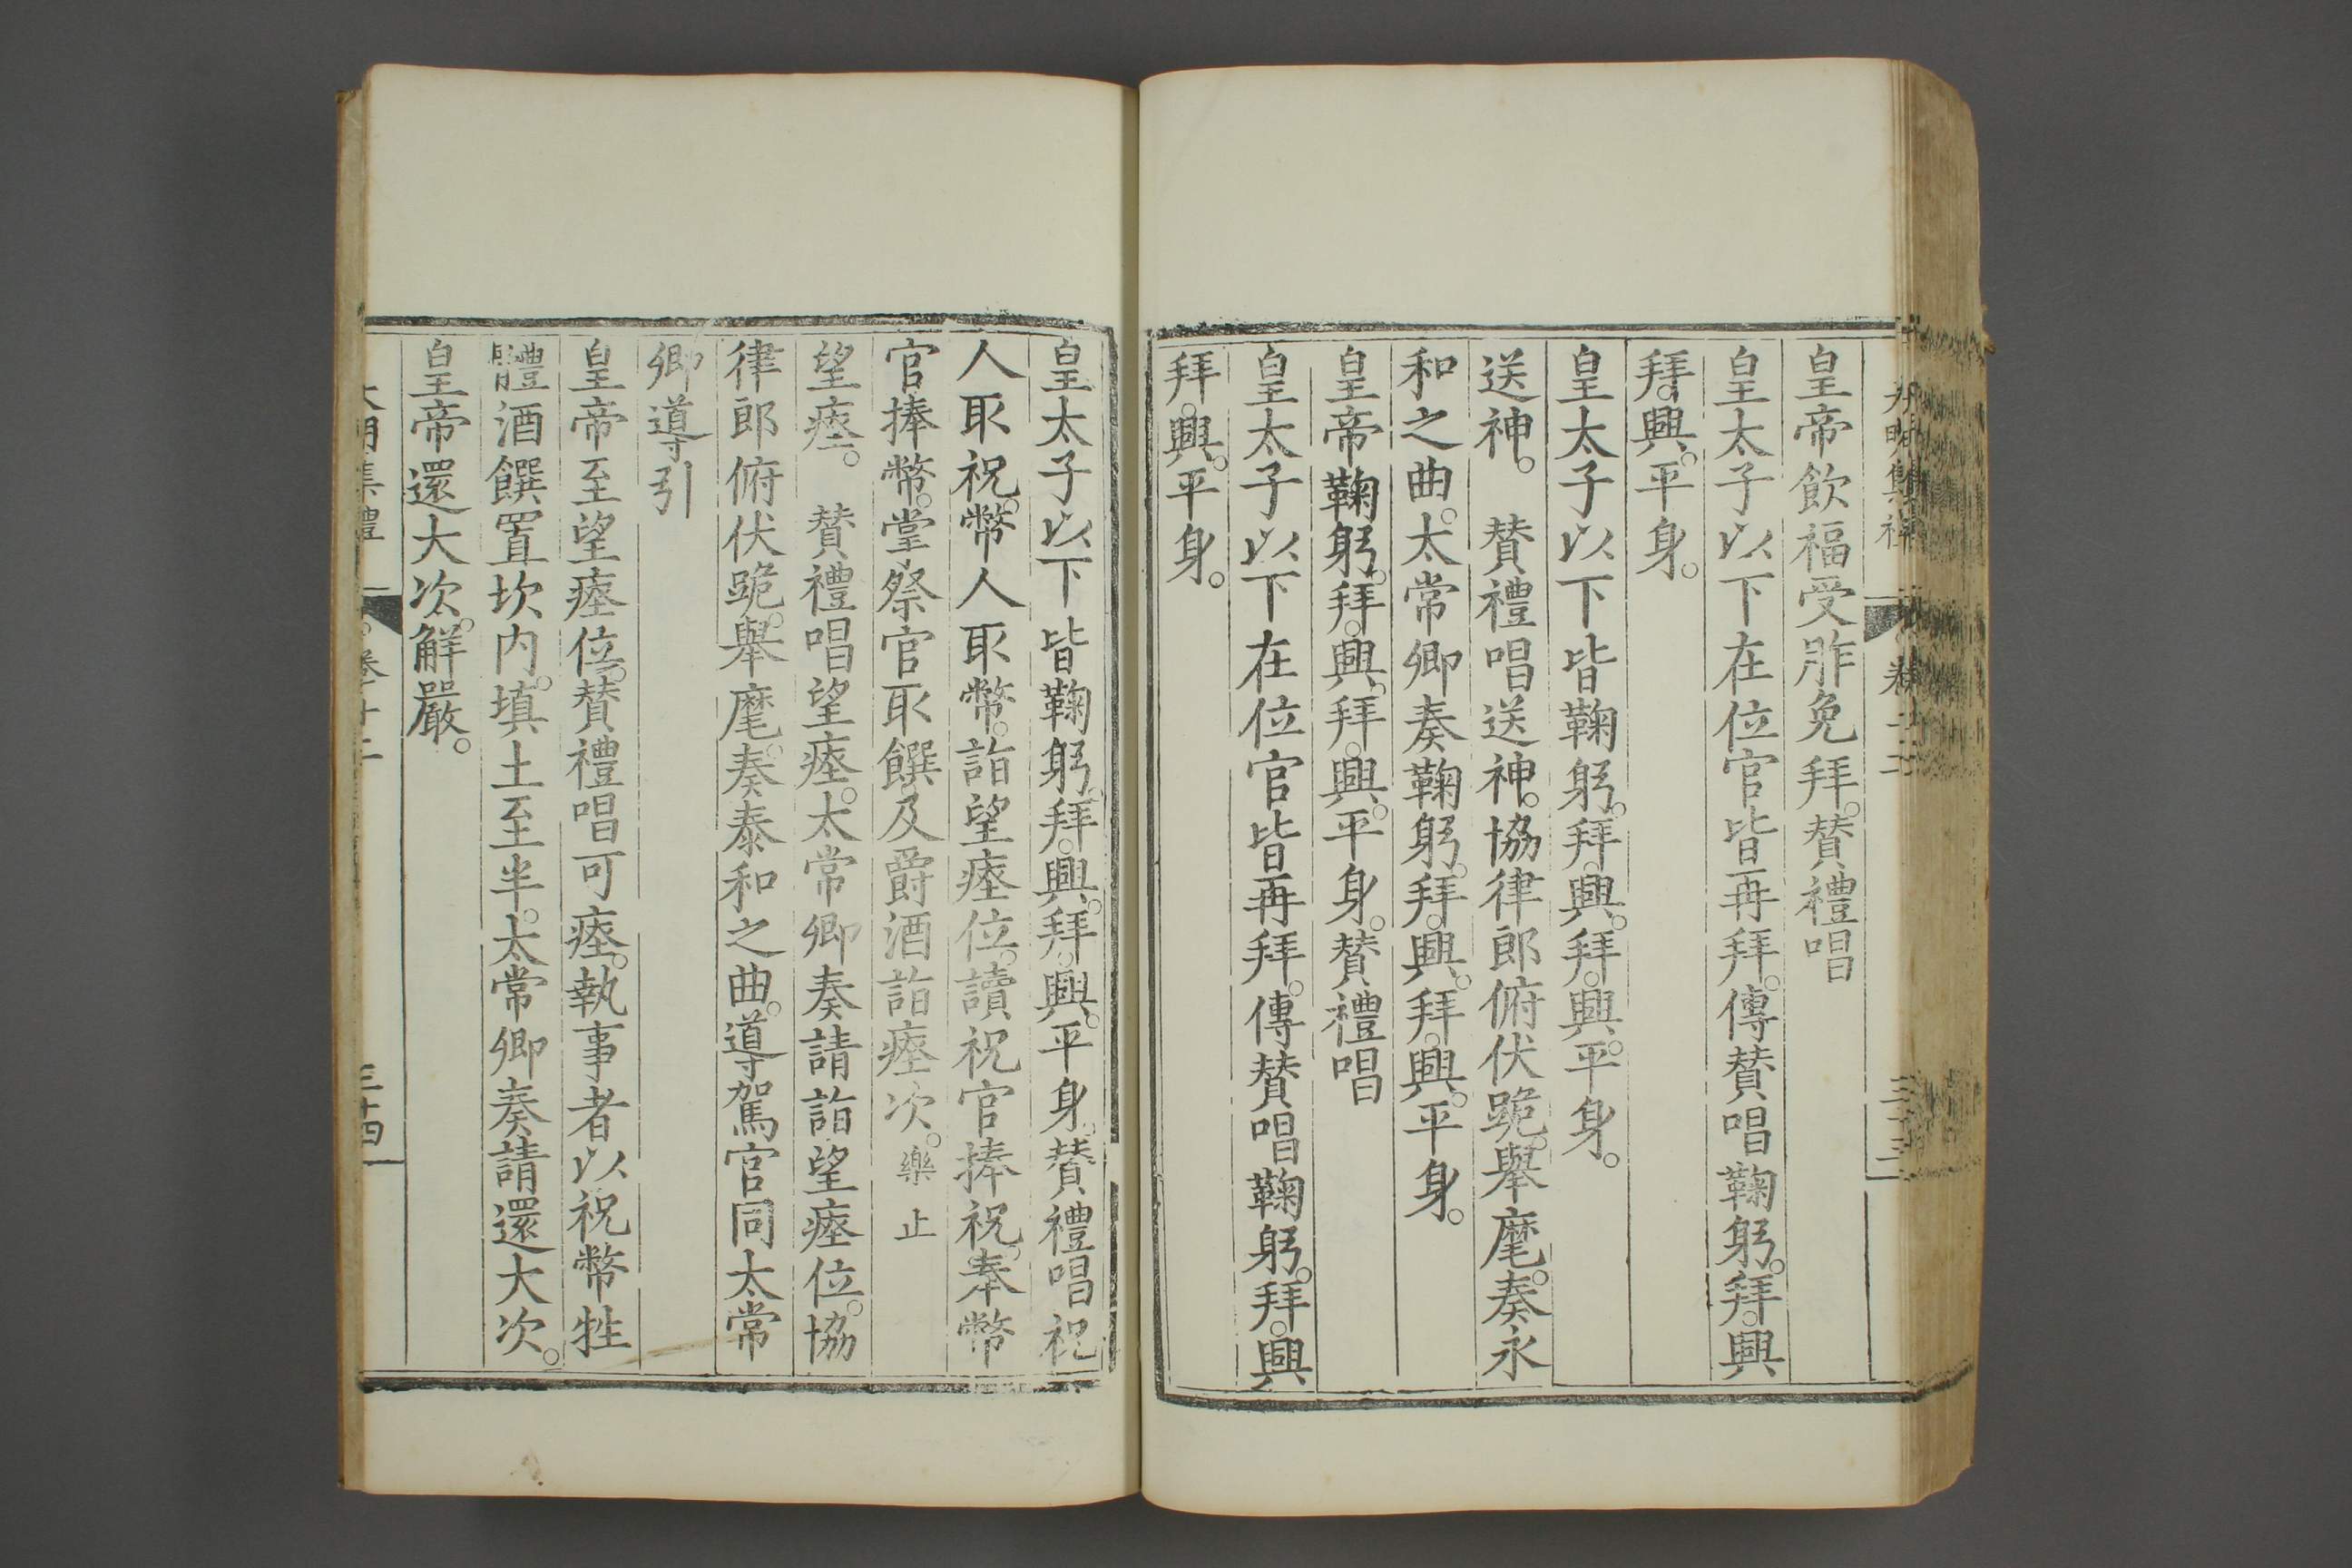 皇帝飲福受胙免拜。賛禮唱
皇太子以下在位官皆再拜。傳賛唱鞠躬。拜。興
拜。興。平身。
皇太子以下皆鞠躬。拜。興。拜。興。平身。
送神。　賛禮唱送神。協律郎俯伏跪。舉麾。奏永
和之曲。太常卿奏鞠躬。拜。興。拜。興。平身。
皇帝鞠躬。拜。興。拜。興。平身。賛禮唱
皇太子以下在位官皆再拜。傳賛唱鞠躬。拜。興
拜。興。平身。
皇太子以下皆鞠躬。拜。興。拜。興。平身。賛禮唱祝
人取祝。幣人取幣。詣望瘞位。讀祝官捧祝。奉幣
官捧幣。掌祭官取饌及爵酒詣瘞次。樂止
望瘞。　賛禮唱望瘞。太常卿奏請詣望瘞位。協
律郎俯伏跪。舉麾。奏泰和之曲。導駕官同太常
卿導引
皇帝至望瘞位。賛禮唱可瘞。執事者以祝幣牲
體酒饌置坎内。填土至半。太常卿奏請還大次。
皇帝還大次。解嚴。
大明集禮　卷十二　三十四